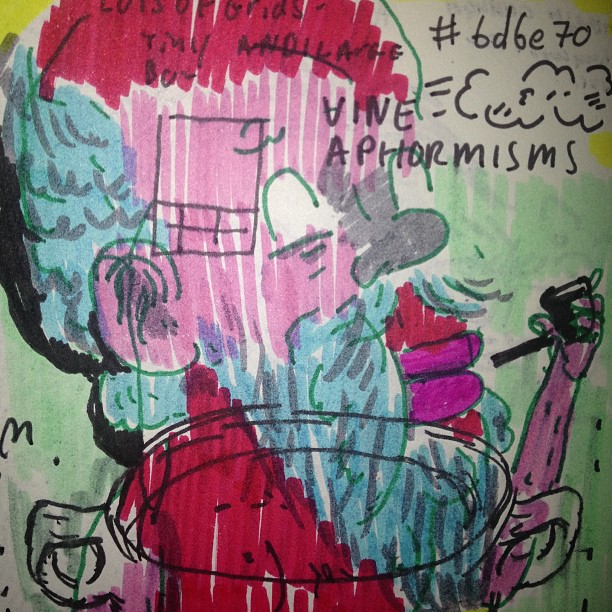 LOTS OF GRIDS -
TINY AND LARGE
BOX
#6d6e70
VINE
APHORMISMS